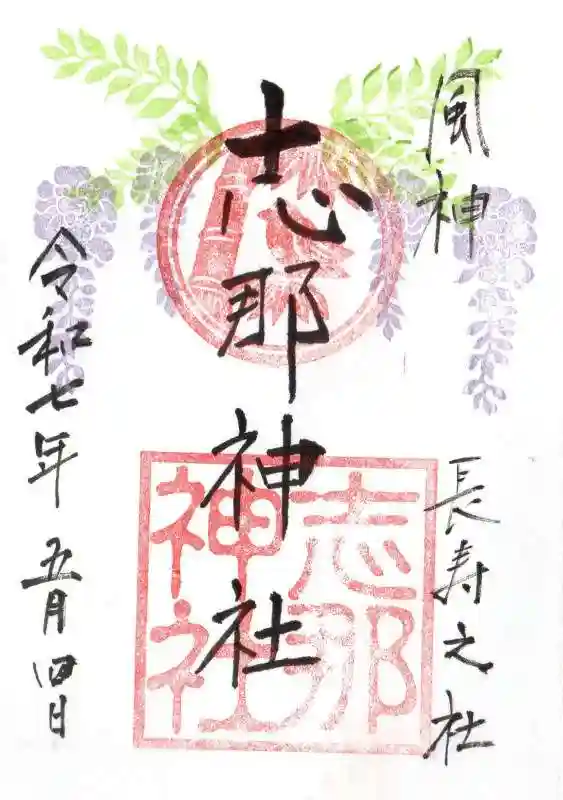 風神
長寿之社
志那神社
志那
神社
令和七年 五月四日